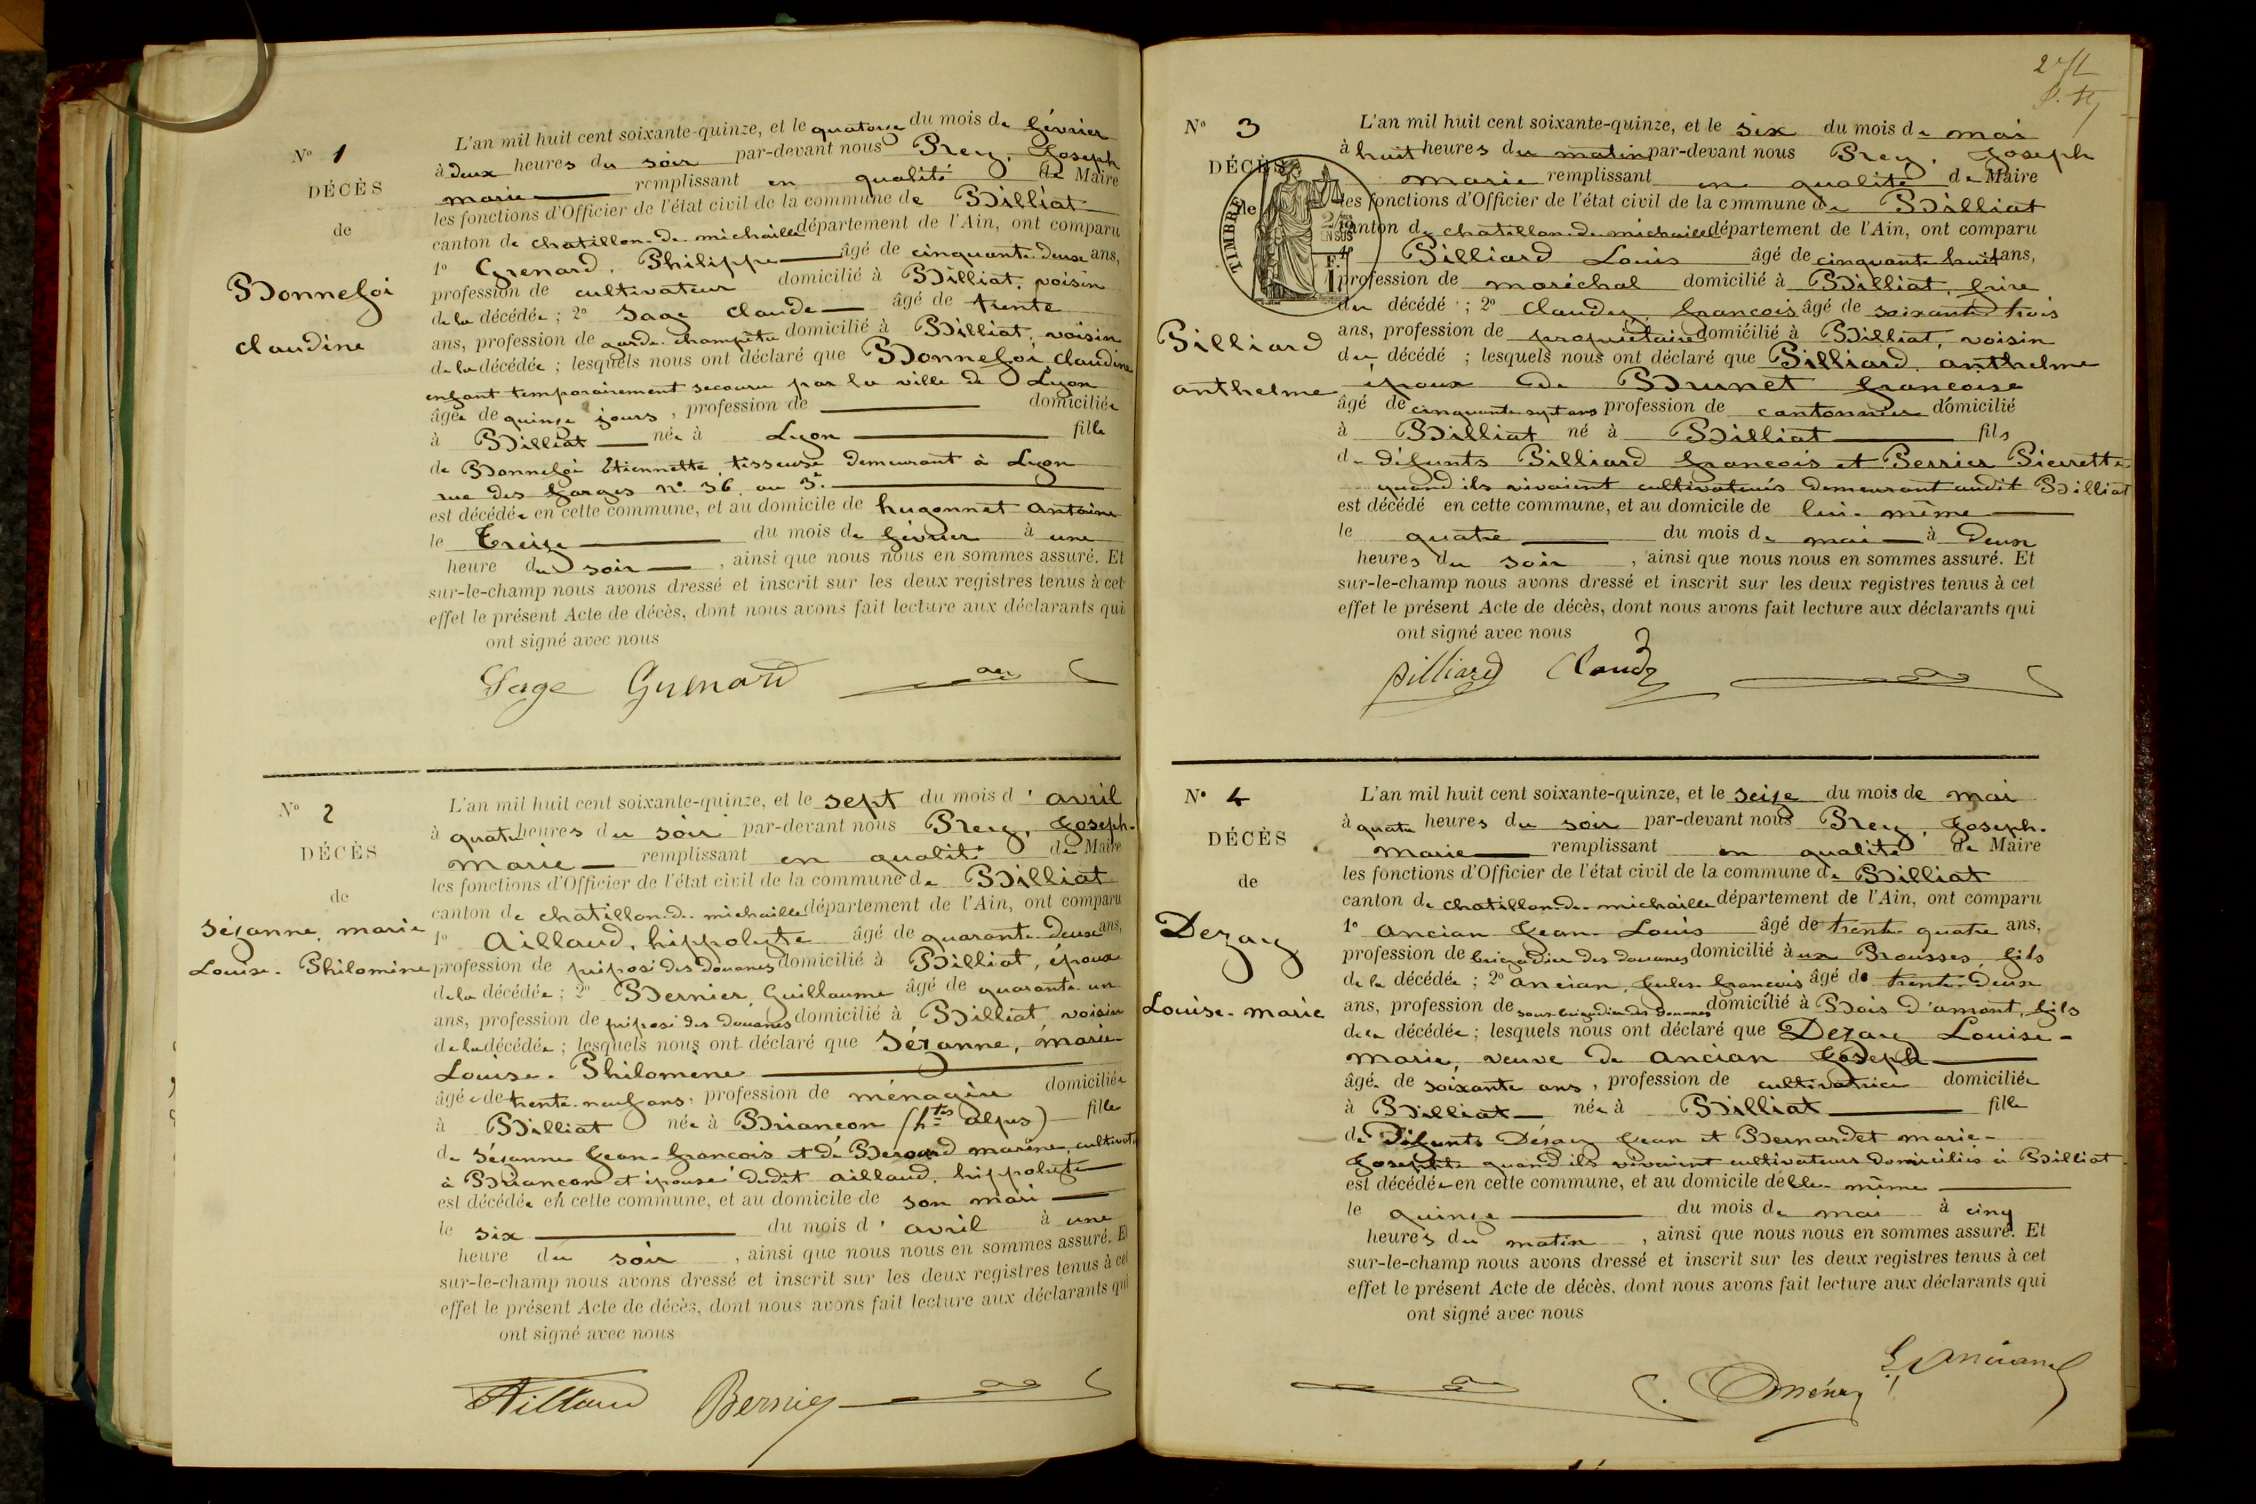 N° 1
DÉCÈS
de
Bonnefoi
claudine
L'an mil huit cent soixante-quinze, et le quatorze du mois de février
à deux heures du soir par-devant nous Prey, Joseph
marie remplissant en qualité de Maire
les fonctions d'Officier de l'état civil de la commune de Billiat
canton de chatillon-de-michaille département de l'Ain, ont comparu
1° Grenard, Philippe âgé de cinquante-deux ans,
profession de cultivateur domicilié à Billiat, voisin
de la décédée ; 2° Sage Claude âgé de trente
ans, profession de garde-champêtre domicilié à Billiat, voisin
de la décédée ; lesquels nous ont déclaré que Bonnefoi claudine
enfant temporairement secouru par la ville de Lyon
âgée de quinze jours, profession de domiciliée
à Billiat née à Lyon fille
de Bonnefoi Etiennette, tisseuse demeurant à Lyon
rue des farges n° 36, au 3e
est décédée en cette commune, et au domicile de hugonnet antoine
le treize du mois de février à une
heure du soir, ainsi que nous nous en sommes assuré. Et
sur-le-champ nous avons dressé et inscrit sur les deux registres tenus à cet
effet le présent Acte de décès, dont nous avons fait lecture aux déclarants qui
ont signé avec nous
Sage Grenard
N° 2
DÉCÈS
de
Sézanne, marie
Louise-Philomine
L'an mil huit cent soixante-quinze, et le sept du mois d'avril
à quatre heures du soir par-devant nous Prey, Joseph-
Marie remplissant en qualité de Maire
les fonctions d'Officier de l'état civil de la commune de Billiat
canton de chatillon-de-michaille département de l'Ain, ont comparu
1° Aillaud, hippolyte âgé de quarante-deux ans,
profession de préposé des douanes domicilié à Billiat, époux
de la décédée ; 2° Bernier, Guillaume âgé de quarante-un
ans, profession de préposé des douanes domicilié à Billiat, voisin
de la décédée ; lesquels nous ont déclaré que Sézanne, marie-
Louise-Philomène
âgée de trente-neuf ans, profession de ménagère domiciliée
à Billiat née à Briançon (htes alpes) fille
de Sézanne Jean-françois et de Berard marine, cultivat
à Briançon et épouse dudit aillaud, hippolyte
est décédée en cette commune, et au domicile de son mari
le six du mois d'avril à une
heure du soir, ainsi que nous nous en sommes assuré. Et
sur-le-champ nous avons dressé et inscrit sur les deux registres tenus à cet
effet le présent Acte de décès, dont nous avons fait lecture aux déclarants qui
ont signé avec nous
Aillaud Bernier
N° 3
DÉCÈS
de
TIMBRE
Billiard
anthelme
L'an mil huit cent soixante-quinze, et le six du mois de mai
à huit heures du matin par-devant nous Prey, Joseph
marie remplissant en qualité de Maire
les fonctions d'Officier de l'état civil de la commune de Billiat
canton de chatillon-de-michaille département de l'Ain, ont comparu
1° Billiard Louis âgé de cinquante huit ans,
profession de maréchal domicilié à Billiat, frère
du décédé ; 2° Claudy, françois âgé de soixante trois
ans, profession de propriétaire domicilié à Billiat, voisin
du décédé ; lesquels nous ont déclaré que Billiard anthelme
époux de Brunet françoise
âgé de cinquante-sept ans profession de cantonnier domicilié
à Billiat né à Billiat fils
de défunts Billiard françois et Perrier Pierrette
quand ils vivaient cultivateurs demeurant audit Billiat
est décédé en cette commune, et au domicile de lui-même
le quatre du mois de mai à deux
heures du soir, ainsi que nous nous en sommes assuré. Et
sur-le-champ nous avons dressé et inscrit sur les deux registres tenus à cet
effet le présent Acte de décès, dont nous avons fait lecture aux déclarants qui
ont signé avec nous
Billiard Claudy
N° 4
DÉCÈS
de
Dezay
Louise-marie
L'an mil huit cent soixante-quinze, et le seize du mois de mai
à quatre heures du soir par-devant nous Prey, Joseph-
marie remplissant en qualité de Maire
les fonctions d'Officier de l'état civil de la commune de Billiat
canton de chatillon-de-michaille département de l'Ain, ont comparu
1° ancian Jean-Louis âgé de trente-quatre ans,
profession de brigadier des douanes domicilié à ux Brousses, fils
de la décédée ; 2° ancian, Jules-françois âgé de trente-deux
ans, profession de sous-brigadier des douanes domicilié à Bois d'amont, fils
de la décédée ; lesquels nous ont déclaré que Dezay Louise-
marie, veuve de ancian Joseph
âgée de soixante ans, profession de cultivatrice domiciliée
à Billiat née à Billiat fille
de Défunts Dézay Jean et Bernardet marie-
Josephte quand ils vivaient cultivateurs domiciliés à Billiat
est décédée en cette commune, et au domicile d'elle-même
le quinze du mois de mai à cinq
heures du matin, ainsi que nous nous en sommes assuré. Et
sur-le-champ nous avons dressé et inscrit sur les deux registres tenus à cet
effet le présent Acte de décès, dont nous avons fait lecture aux déclarants qui
ont signé avec nous